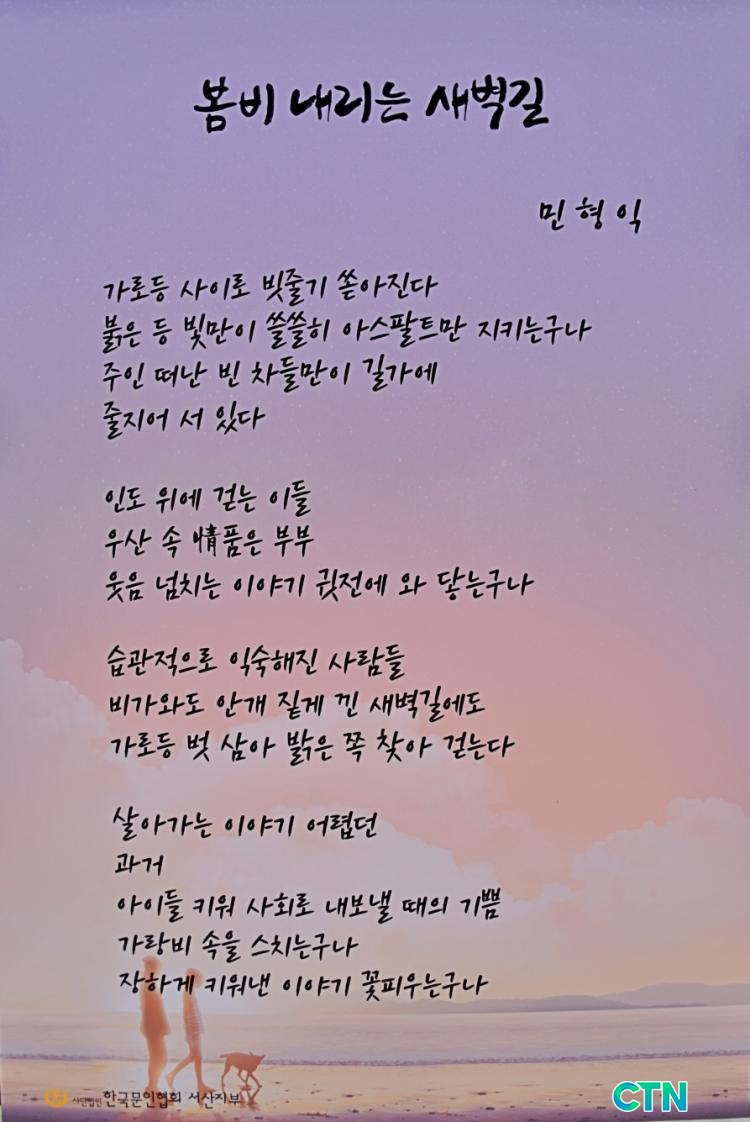 봄비 내리는 새벽길
민형익
가로등 사이로 빗줄기 쏟아진다
붉은 등 빛만이 쓸쓸히 아스팔트만 지키는구나
주인 떠난 빈 차들만이 길가에
줄지어 서 있다
인도 위에 걷는 이들
우산 속 情품은 부부
웃음 넘치는 이야기 귓전에 와 닿는구나
습관적으로 익숙해진 사람들
비가와도 안개 짙게 낀 새벽길에도
가로등 벗 삼아 밝은 쪽 찾아 걷는다
살아가는 이야기 어렵던
과거
아이들 키워 사회로 내보낼 때의 기쁨
가랑비 속을 스치는구나
장하게 키워낸 이야기 꽃피우는구나
사단법인 한국문인협회 서산지부
CTN